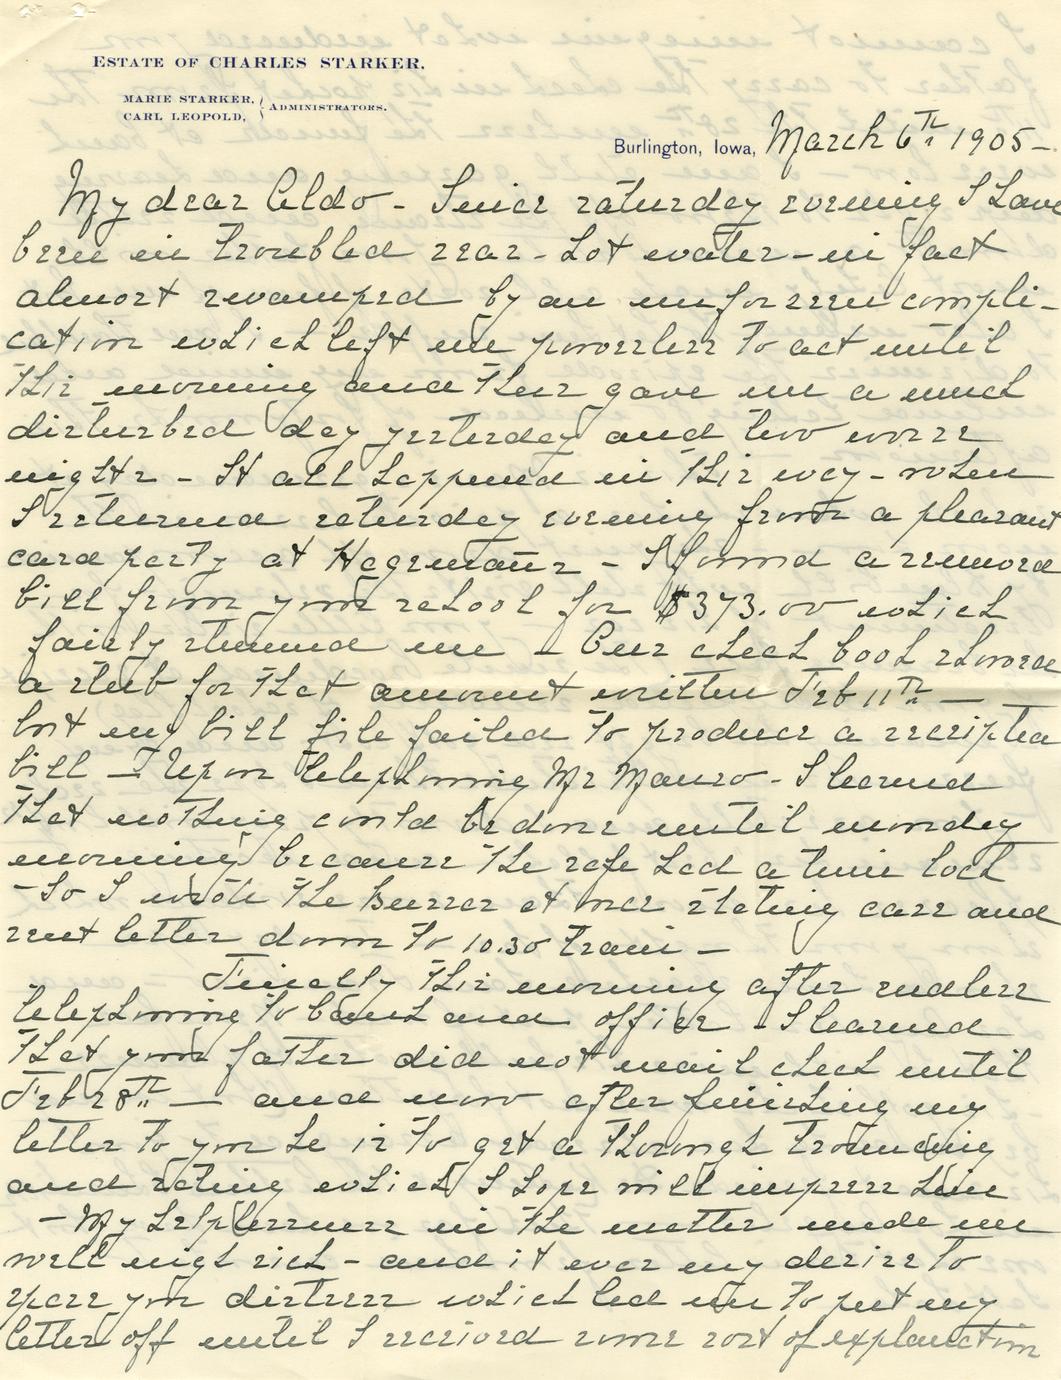 ESTATE OF CHARLES STARKER.
MARIE STARKER, } ADMINISTRATORS.
CARL LEOPOLD,
Burlington, Iowa, March 6th 1905 -
My dear Aldo - Since saturday evening I have
been in troubled seas - hot water - in fact
almost swamped by an unforseen compli-
cation which left me powerless to act until
this morning and thus gave me a much
disturbed day yesterday and two worse
nights - It all happened in this way - when
I returned saturday evening from a pleasant
card party at Hagemanns - I found a second
bill from your school for $373.00 which
fairly stunned me - Our check book showed
a stub for that amount written Feb 11th —
but my bill file failed to produce a receipted
bill - Upon telephoning Mr Mauro - I learned
that nothing could be done until monday
morning because the safe had a time lock
- So I wrote the Bursar at once stating case and
sent letter down to 10.30 train -
Finally this morning after endless
telephoning to bank and office - I learned
that your father did not mail check until
Feb 28th — and now after finishing my
letter to you he is to get a thorough trouncing
and rating which I hope will impress him
- My helplessness in the matter made me
well nigh sick - and it was my desire to
spare you distress which led me to put my
letter off until I received some sort of explanation